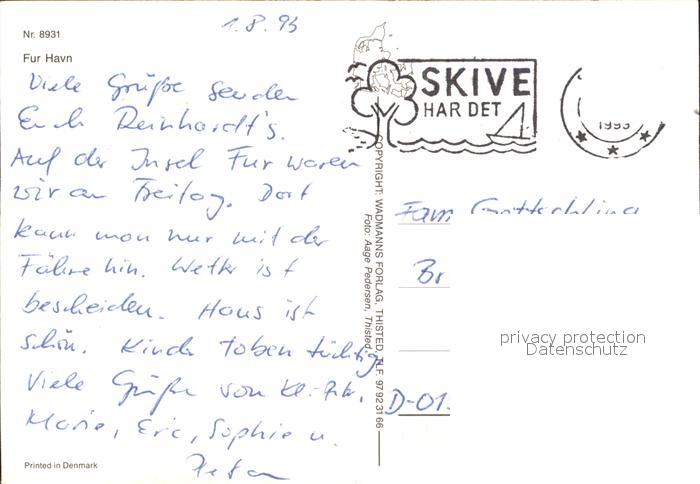 Nr. 8931
Fur Havn
1.8.93
Viele Grüße senden
Euch Reinhardt's.
Auf der Insel Fur waren
wir am Freitag. Dort
kann man nur mit der
Fähre hin. Wetter ist
bescheiden. Haus ist
schön. Kinder toben tüchtig.
Viele Grüße von
Marie, Eric, Sophie u.
Printed in Denmark
SKIVE
HAR DET
1993
COPYRIGHT: WADMANNS FORLAG, THISTED, TLF. 97923166
Foto: Aage Pedersen, Thisted.
Fam.
Br
D-01.
privacy protection
Datenschutz